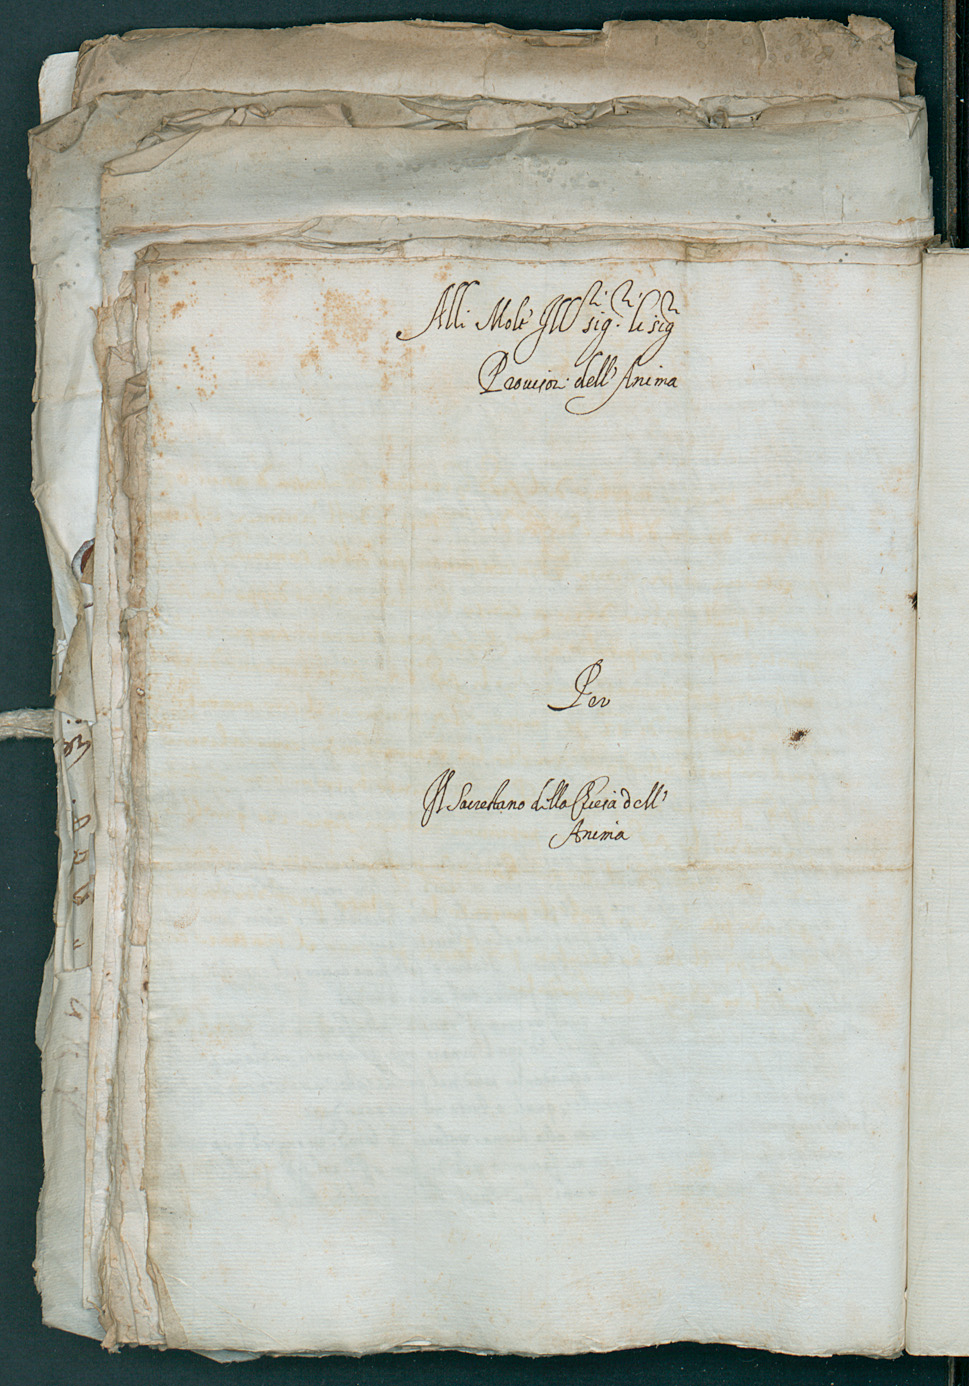 Alli Molt' Ill^ri sig^ri li sig^ri
Provisor: dell' Anima
Per
Il Sacrestano della Chiesa dell'
Anima